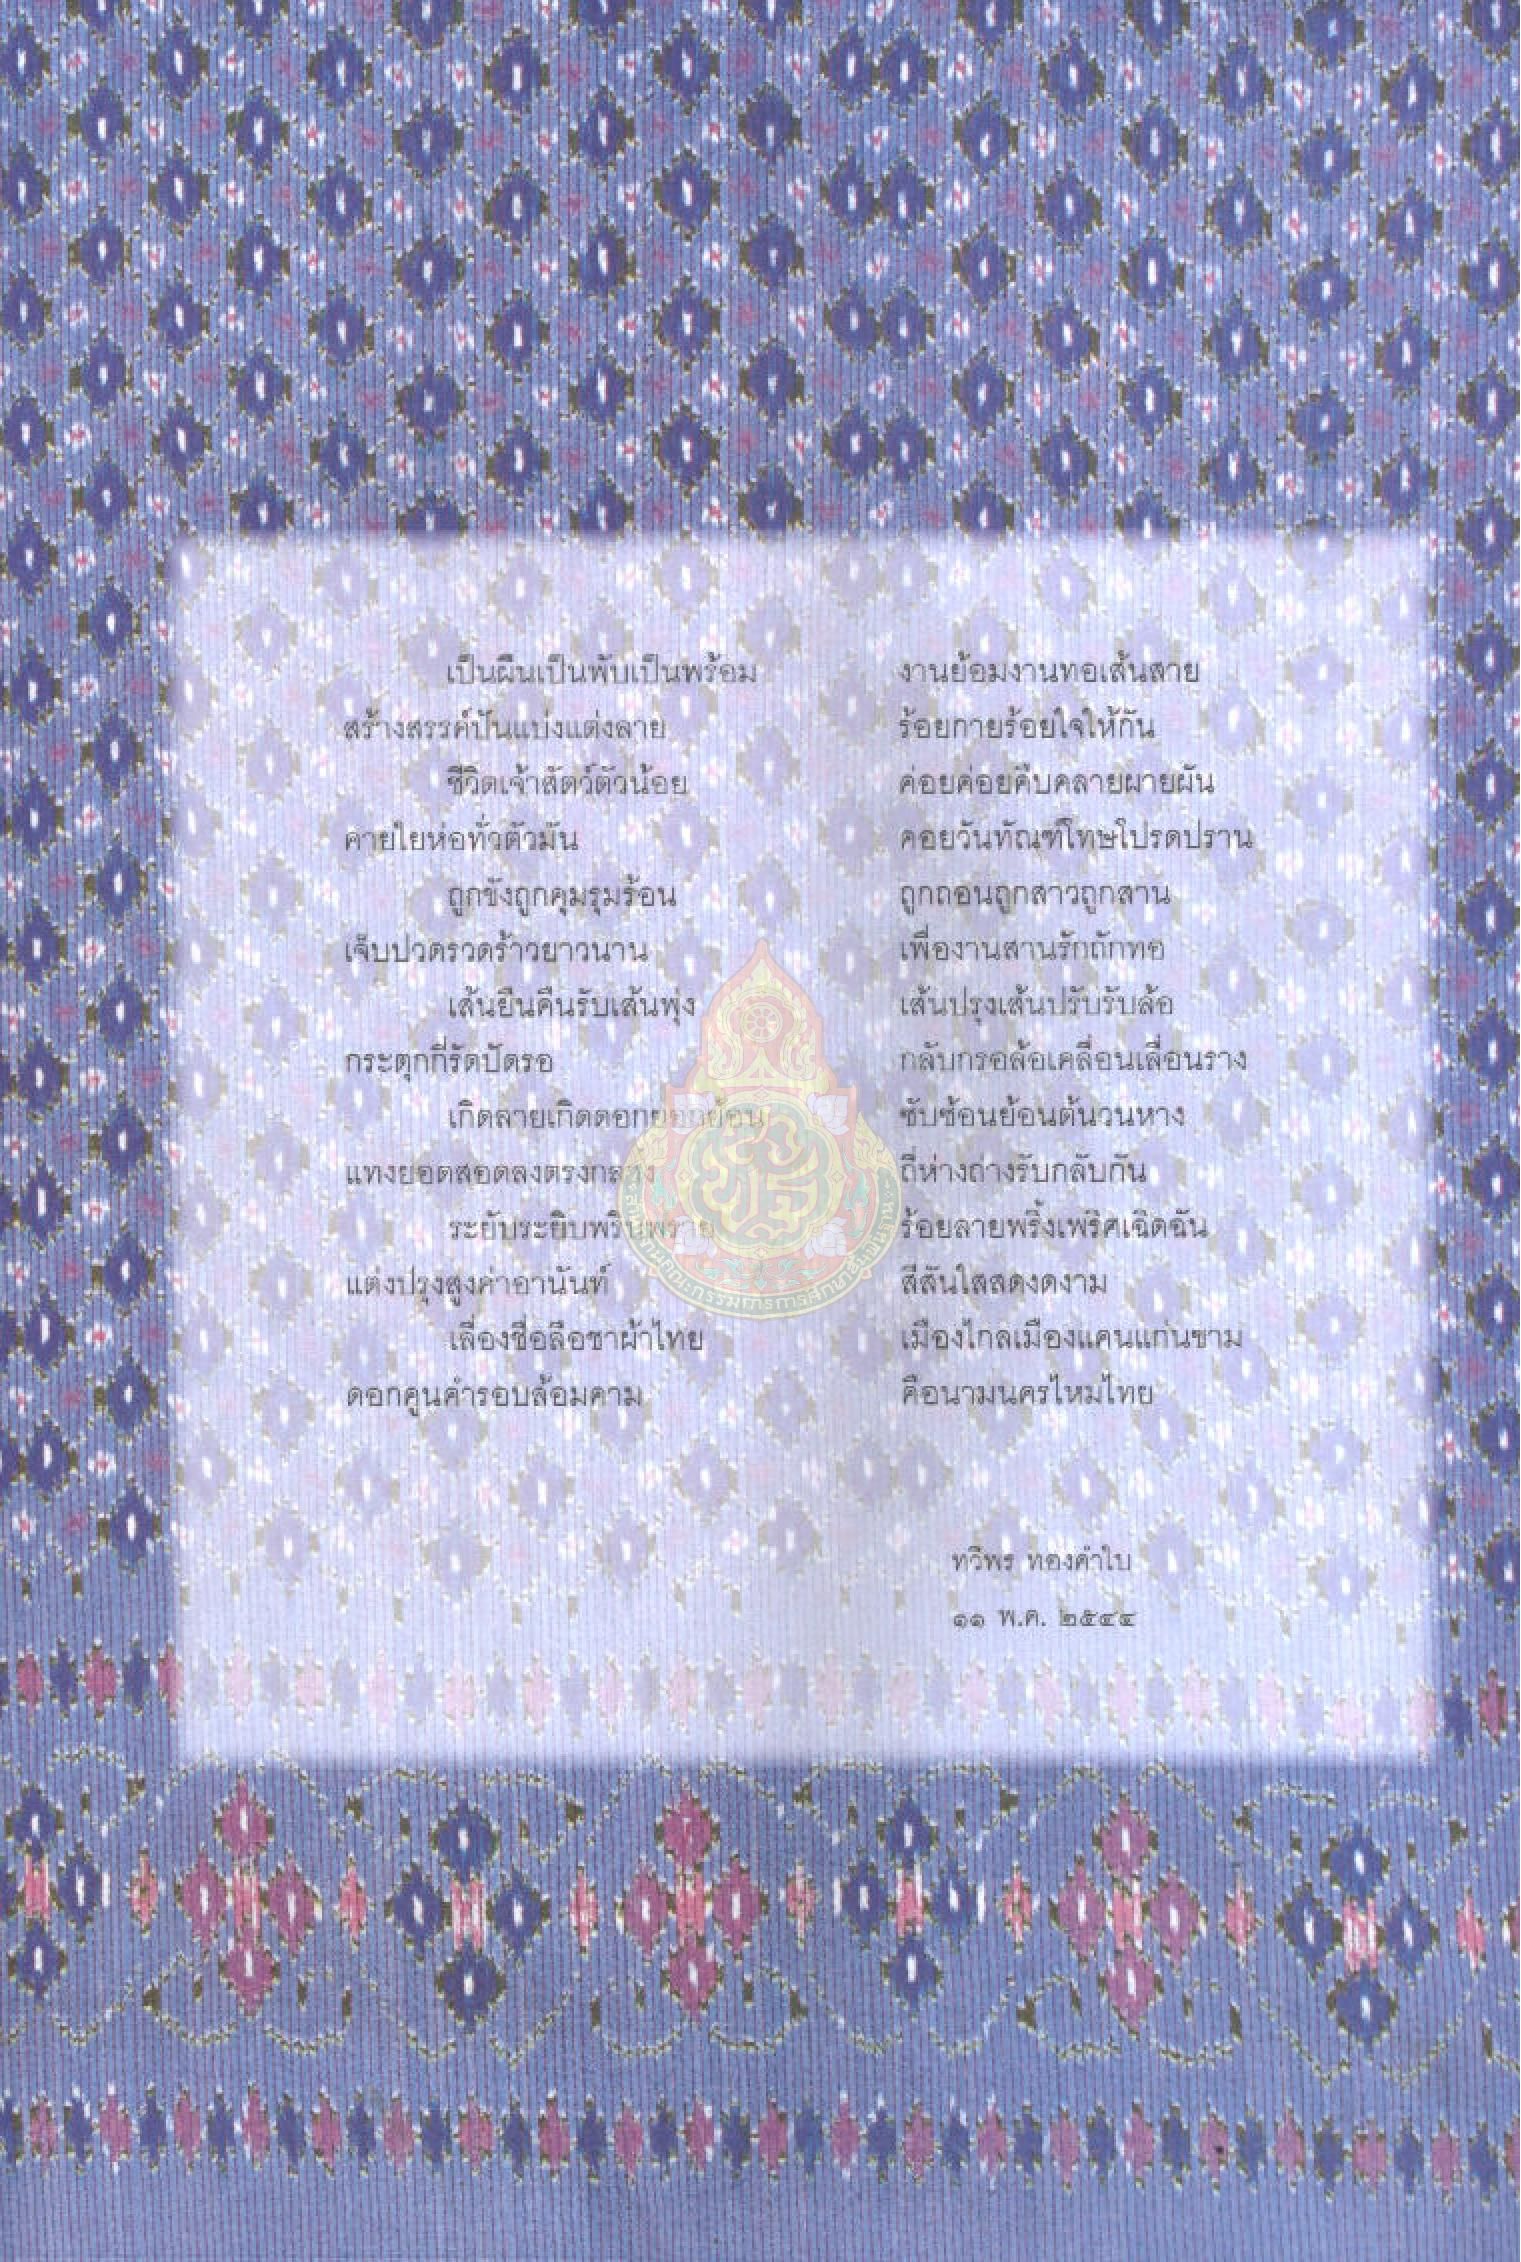 เป็นผืนเป็นพับเป็นพร้อม งานย้อมงานทอเส้นสาย
สร้างสรรค์ปันแบ่งแต่งลาย ร้อยกายร้อยใจให้กัน
ชีวิตเจ้าสัตว์ตัวน้อย ค่อยค่อยคืบคลายผายผัน
คายใยห่อทั่วตัวมัน คอยวันทัณฑ์โทษโปรดปราน
ถูกขังถูกคุมรุมร้อน ถูกถอนถูกสาวถูกสาน
เจ็บปวดรวดร้าวยาวนาน เพื่องานสานรักถักทอ
เส้นยืนคืนรับเส้นพุ่ง เส้นปรุงเส้นปรับรับล้อ
กระตุกกี่รัดปัดรอ กลับกรอล้อเคลื่อนเลื่อนราง
เกิดลายเกิดดอกยอกย้อน ซับซ้อนย้อนต้นวนหาง
แทงยอดสอดลงตรงกลาง ถี่ห่างถ่างรับกลับกัน
ระยับระยิบพริบพราย ร้อยลายพริ้งเพริศเฉิดฉัน
แต่งปรุงสูงค่าอานันท์ สีสันใสสดงดงาม
เลื่องชื่อลือชาผ้าไทย เมืองไกลเมืองแคนแก่นขาม
ดอกคูนคำรอบล้อมคาม คือนามนครไหมไทย
สำนักงานคณะกรรมการการศึกษาขั้นพื้นฐาน
ทวีพร ทองคำใบ
๑๑ พ.ค. ๒๕๔๔